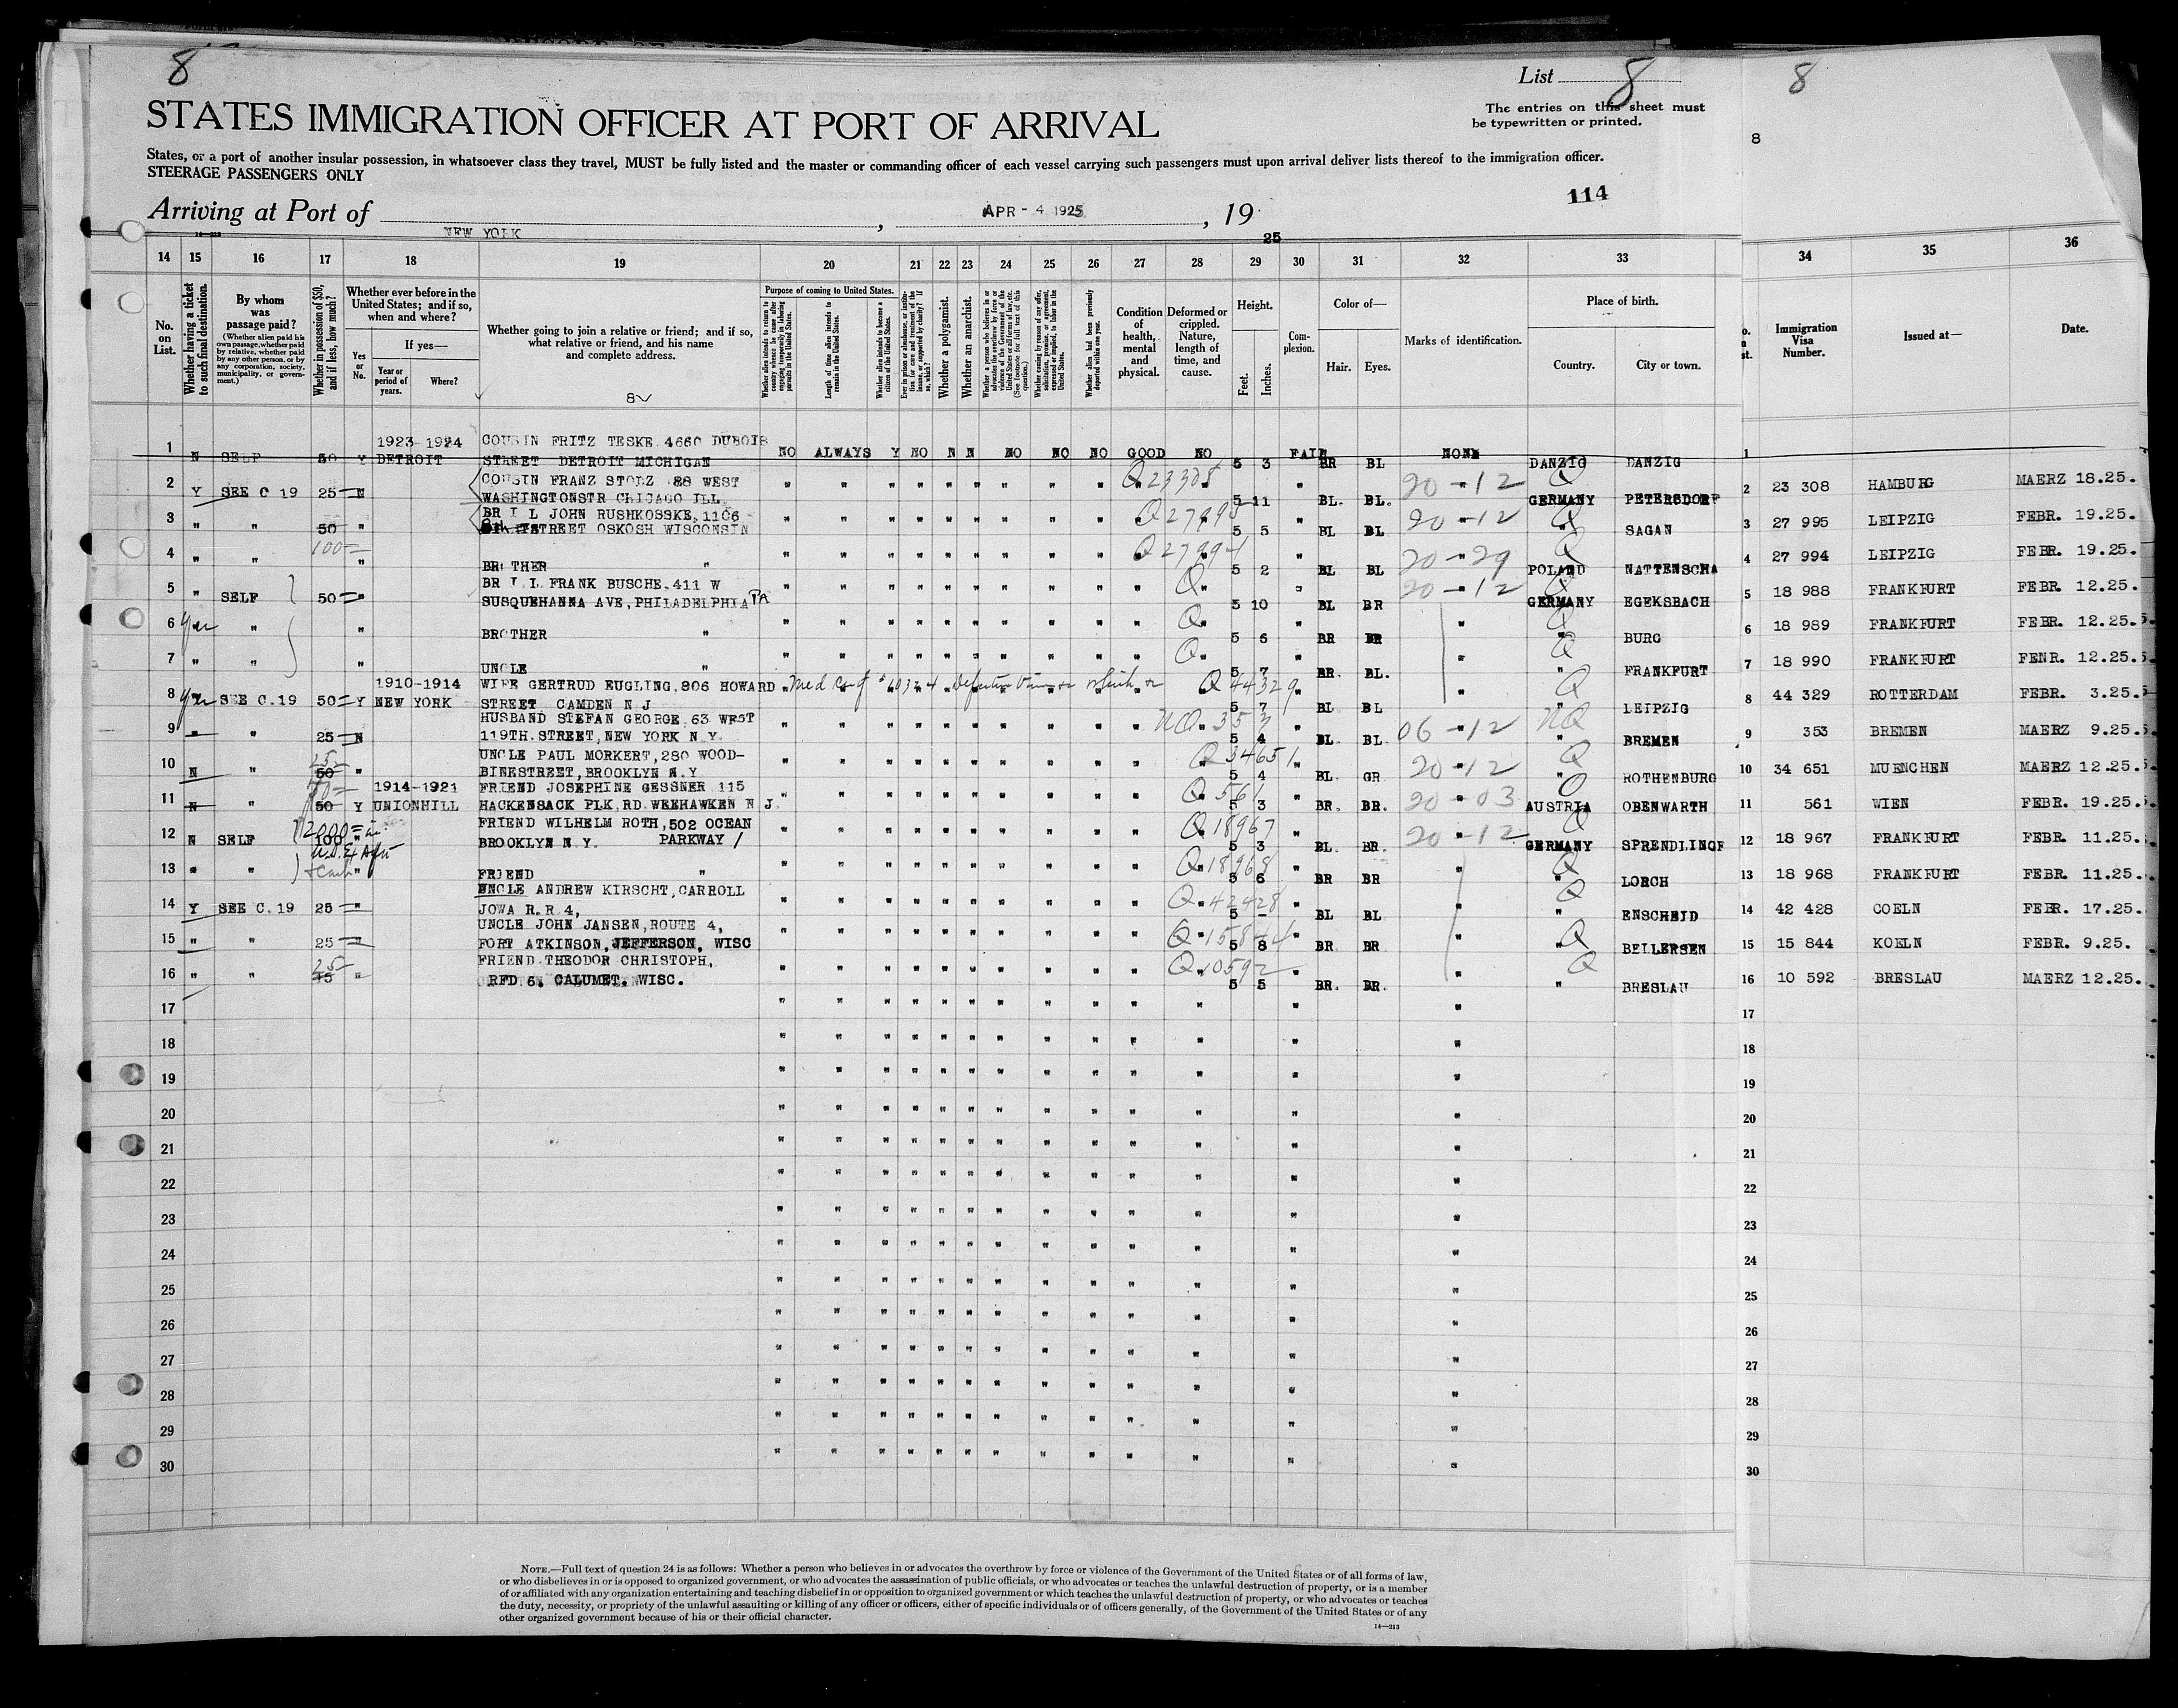 8
List 8
8
The entries on this sheet must
be typewritten or printed.
8
STATES IMMIGRATION OFFICER AT PORT OF ARRIVAL
States, or a port of another insular possession, in whatsoever class they travel, MUST be fully listed and the master or commanding officer of each vessel carrying such passengers must upon arrival deliver lists thereof to the immigration officer.
STEERAGE PASSENGERS ONLY
114
Arriving at Port of NEW YORK, APR - 4 1925, 19 25
14 15 16 17 18 19 20 21 22 23 24 25 26 27 28 29 30 31 32 33 34 35 36
No. on List.
Whether having a ticket to such final destination.
By whom was passage paid?
(Whether alien paid his own passage, whether paid by relative, whether paid by any other person, or by any corporation, society, municipality, or government.)
Whether in possession of $50, and if less, how much?
Whether ever before in the United States; and if so, when and where?
Yes or No.
If yes—
Year or period of years.
Where?
Whether going to join a relative or friend; and if so, what relative or friend, and his name and complete address.
8
Purpose of coming to United States.
Whether alien intends to return to country whence he came after engaging temporarily in laboring pursuits in the United States.
Length of time alien intends to remain in the United States.
Whether alien intends to become a citizen of the United States.
Ever in prison or almshouse, or institution for care and treatment of the insane, or supported by charity? If so, which?
Whether a polygamist.
Whether an anarchist.
Whether a person who believes in or advocates the overthrow by force or violence of the Government of the United States or all forms of law, etc. (See footnote for full text of this question.)
Whether coming by reason of any offer, solicitation, promise, or agreement, expressed or implied, to labor in the United States.
Whether alien had been previously deported within one year.
Condition of health, mental and physical.
Deformed or crippled. Nature, length of time, and cause.
Height.
Feet.
Inches.
Complexion.
Color of—
Hair. Eyes.
Marks of identification.
Place of birth.
Country. City or town.
Immigration Visa Number.
Issued at—
Date.
1 N SELF 50 Y 1923-1924 DETROIT COUSIN FRITZ TESKE 4660 DUBOIS STREET DETROIT MICHIGAN NO ALWAYS Y NO N N NO NO NO GOOD NO 5 3 FAIR BR BL NONE DANZIG DANZIG 1
2 Y SEE C 19 25 N COUSIN FRANZ STOLZ 88 WEST WASHINGTONSTR CHICAGO ILL Q 23308 5 11 " BL. BL. 20 - 12 GERMANY Q PETERSDORF 2 23 308 HAMBURG MAERZ 18.25.
3 " " 50 " BR I L JOHN RUSHKOSSKE, 1106 STREET OSKOSH WISCONSIN Q 27995 5 5 " BL BL 20 - 12 " Q SAGAN 3 27 995 LEIPZIG FEBR. 19.25.
4 " " 100 " BROTHER " Q 27994 5 2 " BL BL 20 - 29 POLAND Q NATTENSCHA 4 27 994 LEIPZIG FEBR. 19.25.
5 " SELF 50 " BR I L FRANK BUSCHE, 411 W SUSQUEHANNA AVE, PHILADELPHIA PA Q 5 10 " BL BR 20 - 12 GERMANY Q EGEKSBACH 5 18 988 FRANKFURT FEBR. 12.25.
6 Yes " " BROTHER " Q 5 6 " BR BR " " Q BURG 6 18 989 FRANKFURT FEBR. 12.25.
7 " " " UNCLE " Q 5 7 " BR. BL. " " Q FRANKFURT 7 18 990 FRANKFURT FENR. 12.25.
8 Yes SEE C.19 50 Y 1910-1914 NEW YORK WIFE GERTRUD EUGLING, 806 HOWARD STREET CAMDEN N J Q 44329 5 7 " BL BL " " Q LEIPZIG 8 44 329 ROTTERDAM FEBR. 3.25.
9 " " 25 N HUSBAND STEFAN GEORGE, 63 WEST 119TH. STREET, NEW YORK N.Y. NQ 353 5 4 " BL. BL. 06 - 12 " NQ BREMEN 9 353 BREMEN MAERZ 9.25.
10 N " 50 25 " UNCLE PAUL MORKERT, 280 WOOD- BINESTREET, BROOKLYN N.Y. Q 34651 5 4 " BL GR 20 - 12 " Q ROTHENBURG 10 34 651 MUENCHEN MAERZ 12.25.
11 N " 50 Y 1914-1921 UNIONHILL FRIEND JOSEPHINE GESSNER 115 HACKENSACK PLK. RD. WEEHAWKEN N J. Q 561 5 3 " BR. BR. 20 - 03 AUSTRIA Q OBENWARTH 11 561 WIEN FEBR. 19.25.
12 N SELF 100 2000 " FRIEND WILHELM ROTH, 502 OCEAN PARKWAY / BROOKLYN N.Y. Q 18967 5 3 " BL. BR. 20 - 12 GERMANY Q SPRENDLINGF 12 18 967 FRANKFURT FEBR. 11.25.
13 " " " FRIEND " Q 18968 5 6 " BR BR " Q LORCH 13 18 968 FRANKFURT FEBR. 11.25.
14 Y SEE C.19 25 " UNCLE ANDREW KIRSCHT, CARROLL JOWA R.R 4, Q 42428 5 - " BL BL " " Q ENSCHEID 14 42 428 COELN FEBR. 17.25.
15 " " 25 " UNCLE JOHN JANSEN, ROUTE 4, FORT ATKINSON, JEFFERSON, WISC Q 15844 5 8 " BR. BR " " Q BELLERSEN 15 15 844 KOELN FEBR. 9.25.
16 " " 15 25 " FRIEND THEODOR CHRISTOPH, RFD 6. CALUMET. WISC. Q 10592 5 5 " BR. BR. " " Q BRESLAU 16 10 592 BRESLAU MAERZ 12.25.
17 17
18 18
19 19
20 20
21 21
22 22
23 23
24 24
25 25
26 26
27 27
28 28
29 29
30 30
NOTE.—Full text of question 24 is as follows: Whether a person who believes in or advocates the overthrow by force or violence of the Government of the United States or of all forms of law,
or who disbelieves in or is opposed to organized government, or who advocates the assassination of public officials, or who advocates or teaches the unlawful destruction of property, or is a member
of or affiliated with any organization entertaining and teaching disbelief in or opposition to organized government or which teaches the unlawful destruction of property, or who advocates or teaches
the duty, necessity, or propriety of the unlawful assaulting or killing of any officer or officers, either of specific individuals or of officers generally, of the Government of the United States or of any
other organized government because of his or their official character.
14—213